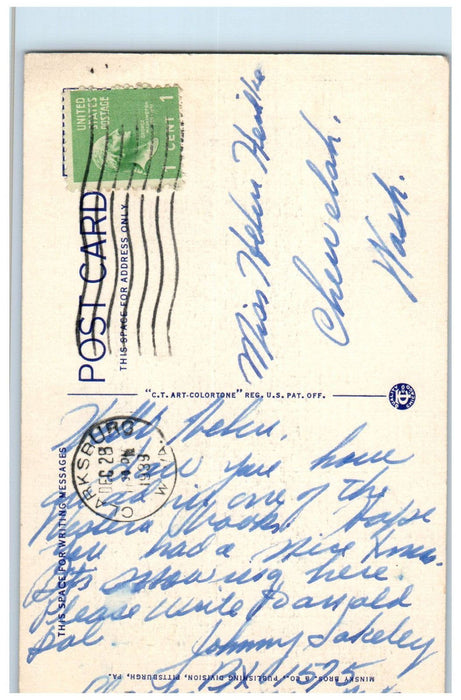 UNITED
STATES
POSTAGE
1 CENT 1
POST CARD
THIS SPACE FOR ADDRESS ONLY
Miss Helen
Chewelah.
Wash.
"C.T. ART-COLORTONE" REG. U.S. PAT. OFF.
THIS SPACE FOR WRITING MESSAGES
CLARKSBURG W.VA.
DEC 28
1939
Hello Helen.
you have
in one of the
Western Hope
you had a nice Xmas.
Its snowing here.
Please write to an old
Pal. Johnny Lakeley
Box 1525
MINSKY BROS. & CO., PUBLISHING DIVISION, PITTSBURGH, PA.